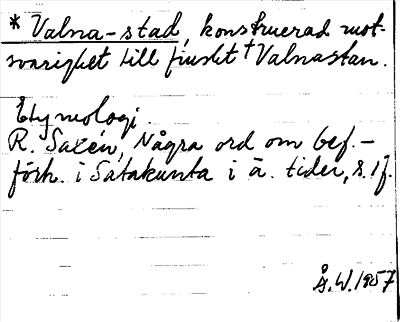 * Valna-stad, konstruerad mot-
svarighet till finskt † Valnastan.
Etymologi.
R. Saxén, Några ord om bef.-
förh. i Satakunta i ä. tider, s. 1f.
Å.W. 1957